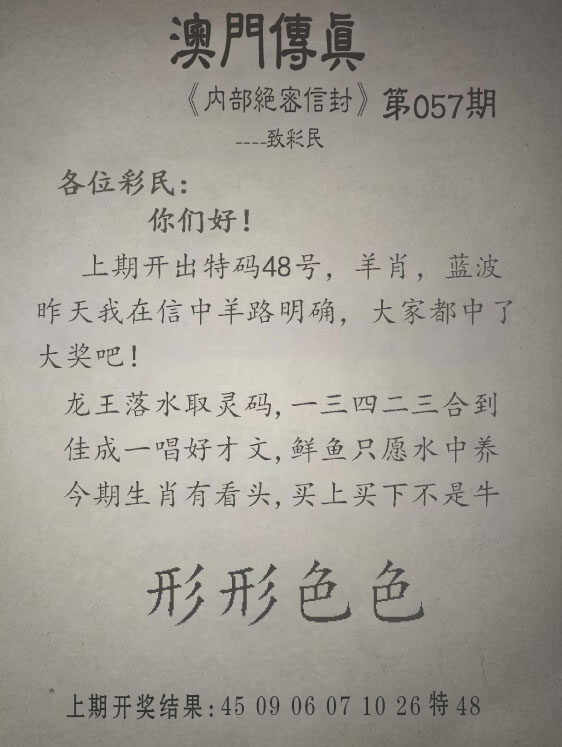 澳門傳真
《内部絕密信封》第057期
----致彩民
各位彩民：
你们好！
上期开出特码48号，羊肖，蓝波
昨天我在信中羊路明确，大家都中了
大奖吧！
龙王落水取灵码,一三四二三合到
佳成一唱好才文,鲜鱼只愿水中养
今期生肖有看头,买上买下不是牛
形形色色
上期开奖结果:45 09 06 07 10 26 特 48